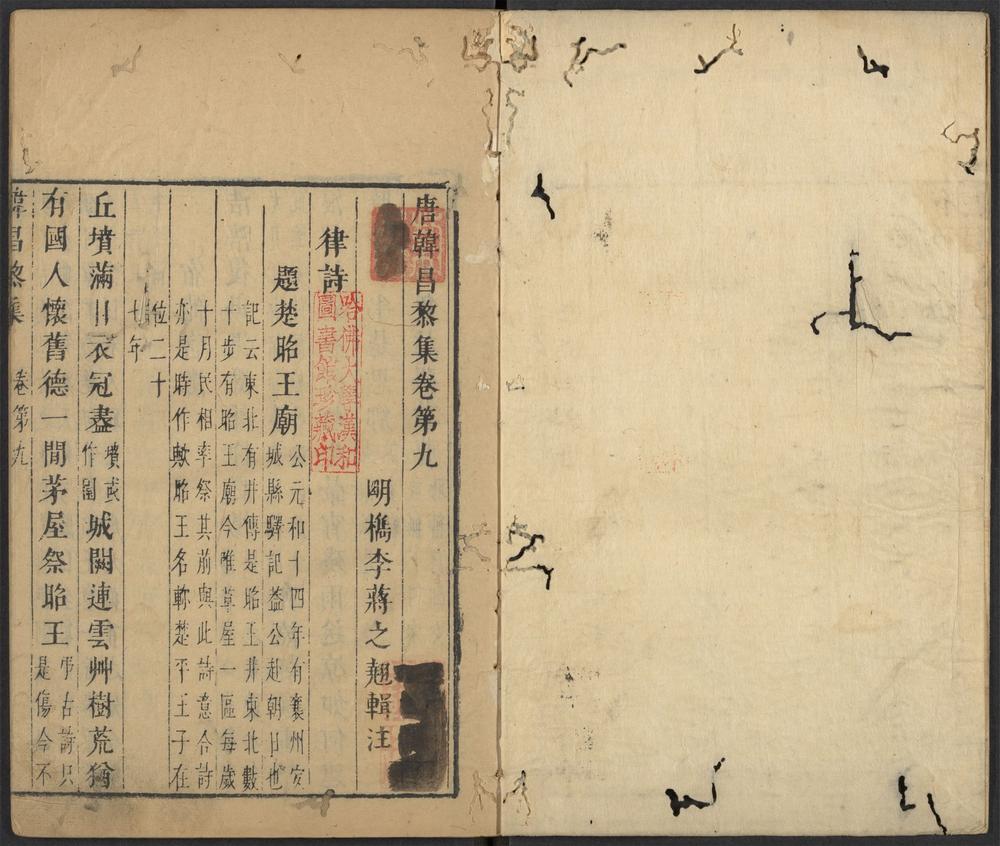 唐韓昌黎集卷第九
明檇李蔣之翹輯注
律詩
哈佛大學漢和
圖書館珍藏印
題楚昭王廟
公元和十四年有襄州宜
城縣驛記益公赴朝日也
記云東北有井傳是昭王井東北數
十步有昭王廟今惟草屋一區每歲
十月民相率祭其前與此詩意合詩
亦是時作歟昭王名軫楚平王子在
位二十
七年
丘墳滿目衣冠盡墳或作園城闕連雲艸樹荒猶
有國人懷舊德一間茅屋祭昭王弔古詩只是傷今不
韓昌黎集 卷第九